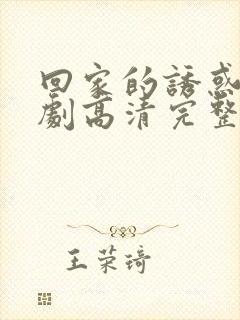 回家的誘惑
劇高清完整
王荣琦